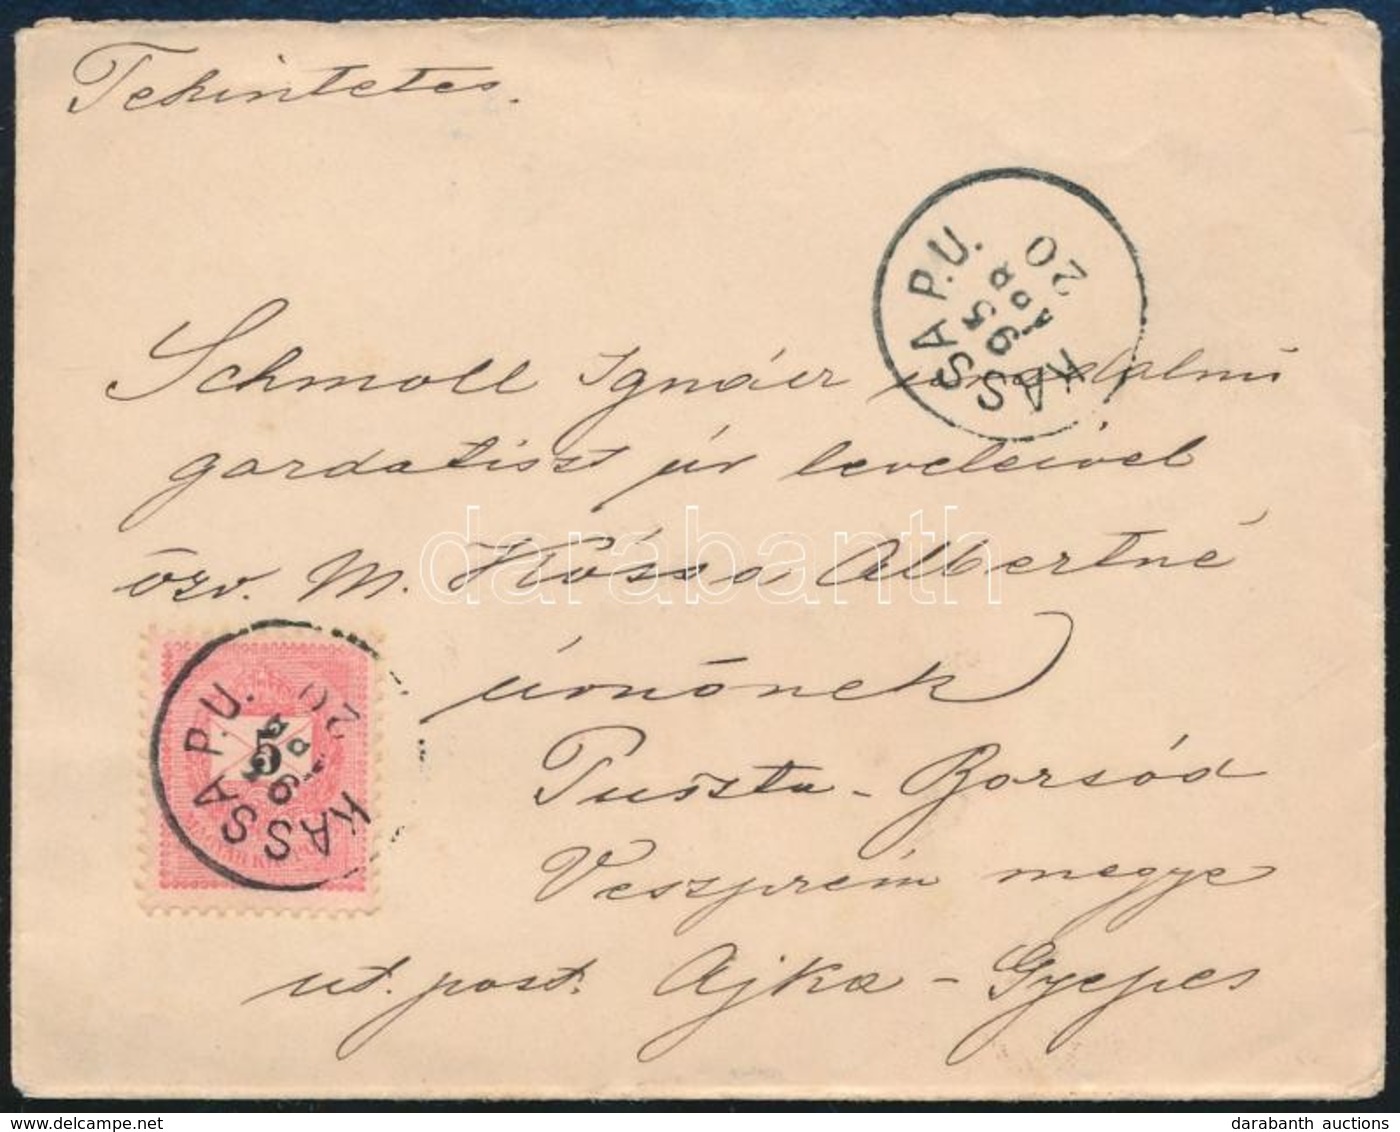 Tekintetes.
KASSA P.U.
95
APR
20
Schmoll Ignácz uradalmi
gazdatiszt úr leveleivel
özv. M. Kóssa Albertné
úrnőnek
5
KASSA P.U.
20
Puszta - Borsód
Veszprém megye
ut. post. Ajka - Gyepes
darabanth
delcampe.net
darabanth auctions